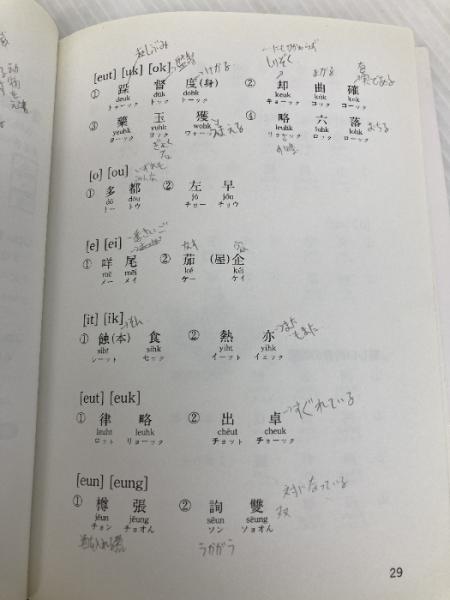 [eut] [uk] [ok]
① 跺 督 度(身) ② 却 曲 確
deuk dūk dohk keuk kūk kok
チョーック トゥック トーック キョーック コック コーック
③ 藥 玉 獲 ④ 略 六 落
yeuhk yuhk wohk leuhk luhk lohk
ヨーック ヨック ウォーック リョーック ロック ローック
[o] [ou]
① 多 都 ② 左 早
dō dōu jó jóu
トー トウ チョー チョウ
[e] [ei]
① 咩 尾 ② 茄 (屋)企
mē méi ké kéi
メー メイ ケー ケイ
[it] [ik]
① 蝕(本) 食 ② 熱 亦
siht sihk yiht yihk
シーット セック イーット イェック
[eut] [euk]
① 律 略 ② 出 卓
leuht leuhk chēut cheuk
ロット リョーック チョット チョーック
すぐれている
[eun] [eung]
① 樽 張 ② 詢 雙
jēun jēung sēun sēung
チョン チョオん ソン ソョオん
対になっている
双
うかがう
29